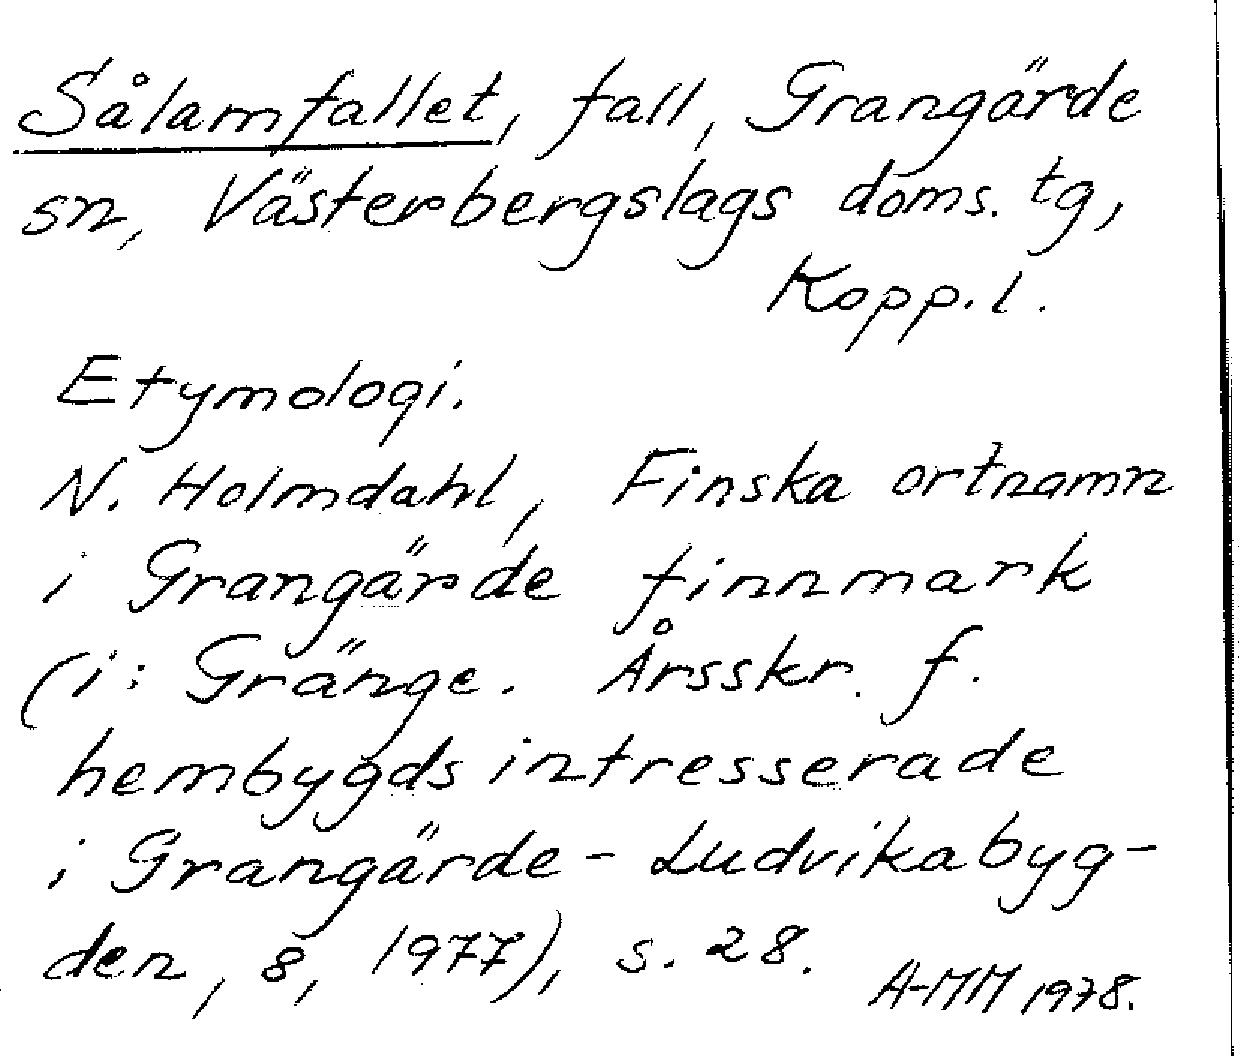 Sålamfallet, fall, Grangärde
sn, Västerbergslags doms. tg,
Kopp. l.
Etymologi.
N. Holmdahl, Finska ortnamn
i Grangärde finnmark
(i: Gränge. Årsskr. f.
hembygdsintresserade
i Grangärde-Ludvikabyg-
den, 8, 1977), s. 28.
A-MM 1978.